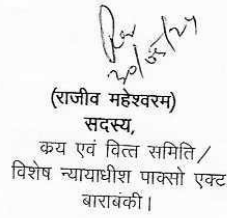 30/05/24
(राजीव महेश्वरम)
सदस्य,
कय एवं वित्त समिति/
विशेष न्यायाधीश पाक्सो एक्ट
बाराबंकी।